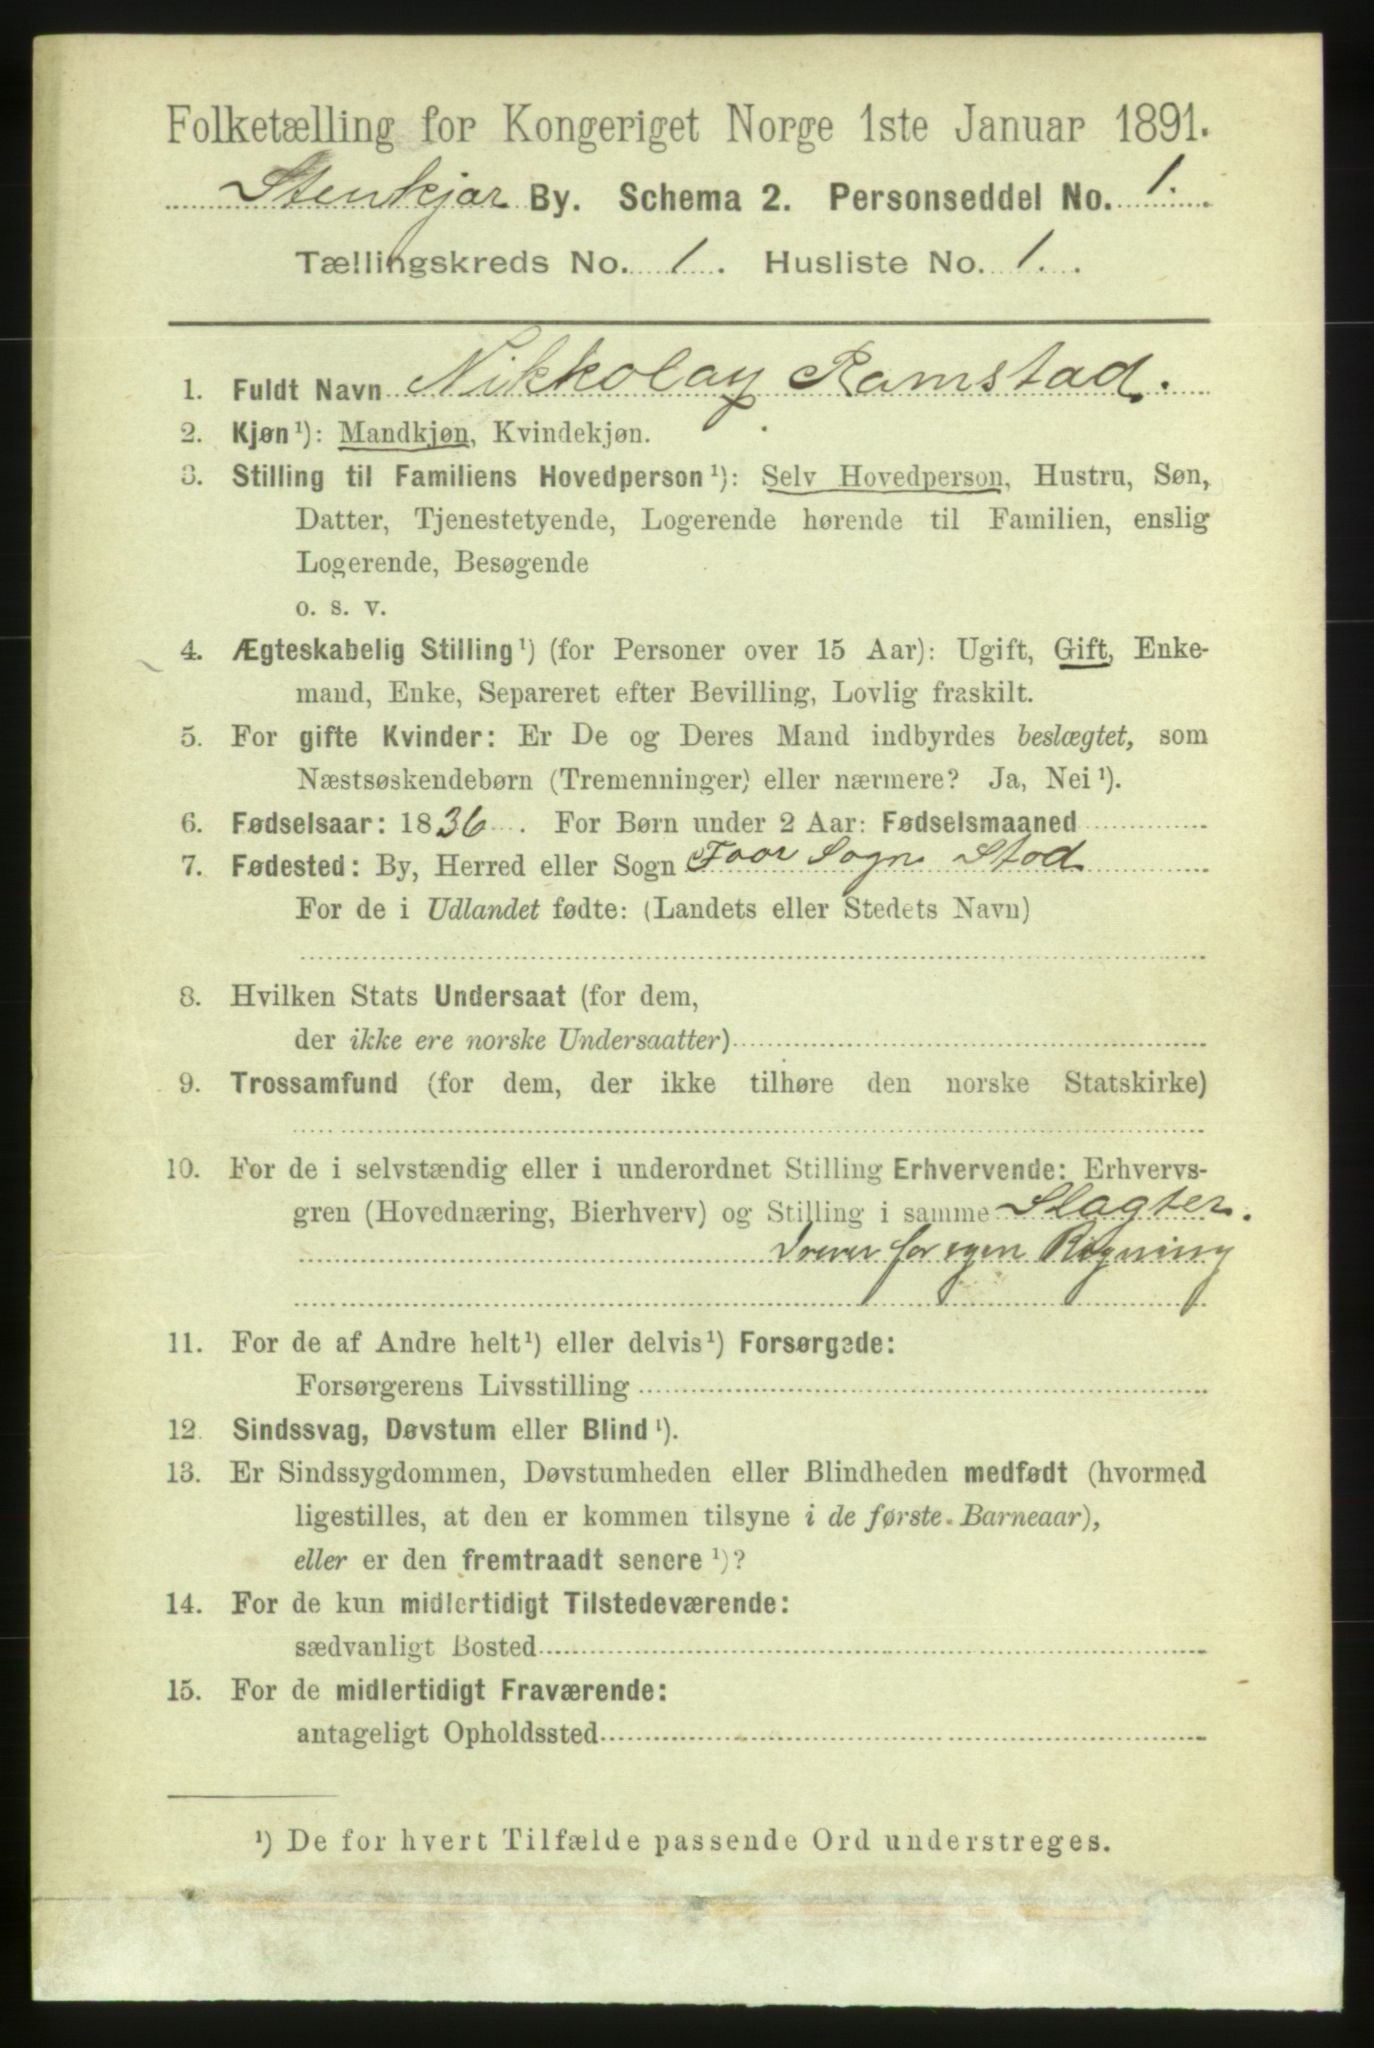 Folketælling for Kongeriget Norge 1ste Januar 1891.
Stenkjær By. Schema 2. Personseddel No. 1.
Tællingskreds No. 1. Husliste No. 1.
1. Fuldt Navn Nikkolay Ramstad.
2. Kjøn ¹): Mandkjøn, Kvindekjøn.
3. Stilling til Familiens Hovedperson ¹): Selv Hovedperson, Hustru, Søn,
Datter, Tjenestetyende, Logerende hørende til Familien, enslig
Logerende, Besøgende
o. s. v.
4. Ægteskabelig Stilling ¹) (for Personer over 15 Aar): Ugift, Gift, Enke-
mand, Enke, Separeret efter Bevilling, Lovlig fraskilt.
5. For gifte Kvinder: Er De og Deres Mand indbyrdes beslægtet, som
Næstsøskendebørn (Tremenninger) eller nærmere? Ja, Nei ¹).
6. Fødselsaar: 1836. For Børn under 2 Aar: Fødselsmaaned
7. Fødested: By, Herred eller Sogn For Sogn Stod
For de i Udlandet fødte: (Landets eller Stedets Navn)
8. Hvilken Stats Undersaat (for dem,
der ikke ere norske Undersaatter)
9. Trossamfund (for dem, der ikke tilhøre den norske Statskirke)
10. For de i selvstændig eller i underordnet Stilling Erhvervende: Erhvervs-
gren (Hovednæring, Bierhverv) og Stilling i samme Slagter.
Drever for egen Regning
11. For de af Andre helt ¹) eller delvis ¹) Forsørgede:
Forsørgerens Livsstilling
12. Sindssvag, Døvstum eller Blind ¹).
13. Er Sindssygdommen, Døvstumheden eller Blindheden medfødt (hvormed
ligestilles, at den er kommen tilsyne i de første Barneaar),
eller er den fremtraadt senere ¹)?
14. For de kun midlertidigt Tilstedeværende:
sædvanligt Bosted
15. For de midlertidigt Fraværende:
antageligt Opholdssted
¹) De for hvert Tilfælde passende Ord understreges.